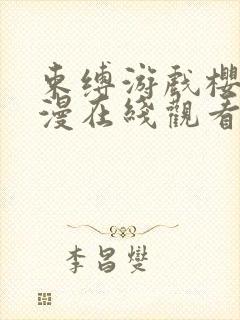 束缚游戏樱
漫在綫觀看
李昌燮